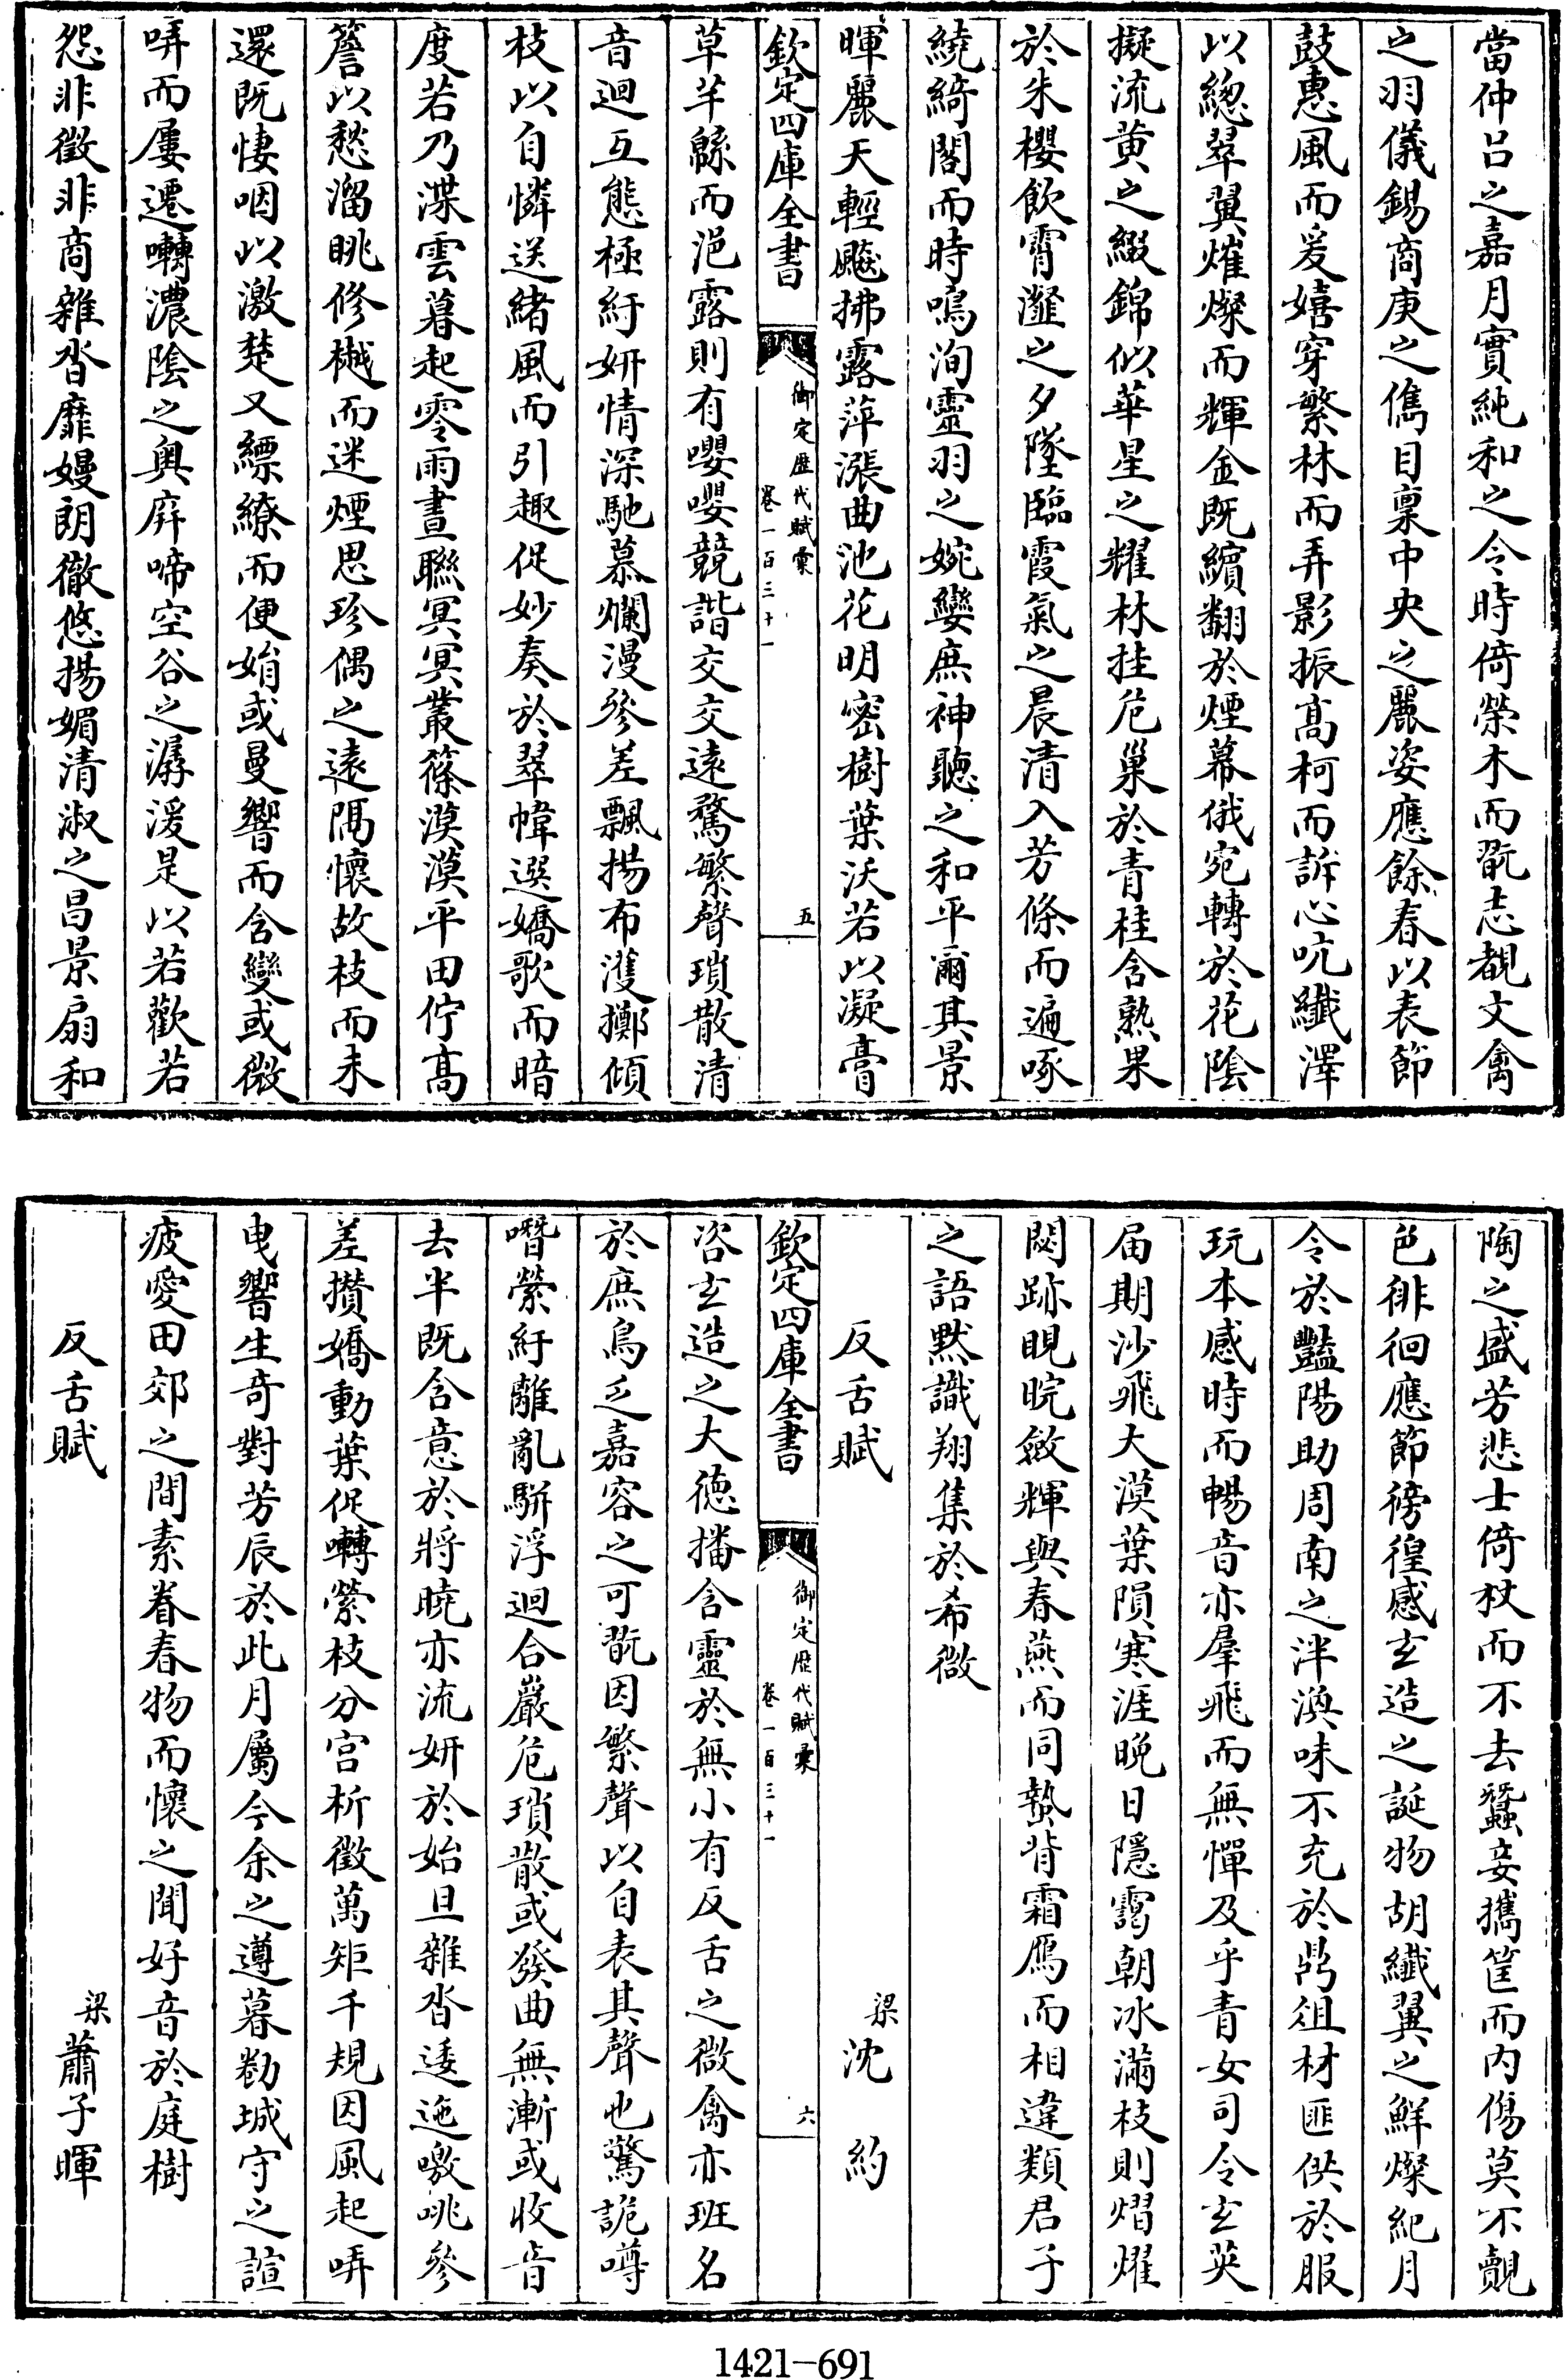 當仲呂之嘉月實純和之令時倚榮木而翫志覩文禽
之羽儀錫商庚之儁目稟中央之麗姿應餘春以表節
鼓惠風而爰嬉穿繁林而弄影振髙柯而訢心吭纎澤
以緫翠翼熣燦而輝金既繽翻於煙幕俄宛轉於花陰
擬流黄之綴錦似華星之耀林挂危巢於青桂含熟果
於朱櫻飲霄瀣之夕墜臨霞氣之晨清入芳條而遍啄
繞綺閣而時鳴洵靈羽之婉孌庶神聽之和平爾其景
暉麗天輕飈拂露萍漲曲池花明密樹葉沃若以凝膏
欽定四庫全書 御定歴代賦彙 卷一百三十一 五
草芊緜而浥露則有嚶嚶競諧交交遠騖繁聲瑣散清
音迴互態極紆妍情深馳慕爛漫參差飄揚布濩擲傾
枝以自憐送緒風而引趣促妙奏於翠幃選嬌歌而暗
度若乃渫雲暮起零雨晝聯冥冥叢篠漠漠平田佇髙
簷以愁溜眺修樾而迷煙思珍偶之遠隔懷故枝而未
還既悽咽以激楚又縹繚而便娟或曼響而含變或微
哢而屢遷囀濃陰之奥屏啼空谷之潺湲是以若歡若
怨非徵非商雜沓靡嫚朗徹悠揚媚清淑之昌景扇和
陶之盛芳悲士倚杖而不去蠶妾攜筐而内傷莫不覿
色徘徊應節徬徨感玄造之誕物胡纎翼之鮮燦紀月
令於豔陽助周南之泮渙味不充於鼎俎材匪供於服
玩本感時而暢音亦羣飛而無憚及乎青女司令玄英
届期沙飛大漠葉隕寒涯晩日隱靄朝氷滿枝則熠燿
閟跡睍睆斂輝與春燕而同蟄背霜鴈而相違類君子
之語黙識翔集於希微
反舌賦 梁沈約
欽定四庫全書 御定歴代賦彙 卷一百三十一 六
咨玄造之大德播含靈於無小有反舌之微禽亦班名
於庶鳥乏嘉容之可翫因繁聲以自表其聲也驚詭噂
噆縈紆離亂駢浮迴合嚴危瑣散或發曲無漸或收音
去半既含意於將曉亦流妍於始旦雜沓逶迤噭咷參
差攢嬌動葉促囀縈枝分宫析徵萬矩千規因風起哢
曳響生奇對芳辰於此月屬今余之遵暮勌城守之諠
疲愛田郊之間素眷春物而懷之聞好音於庭樹
反舌賦 梁蕭子暉
1421-691